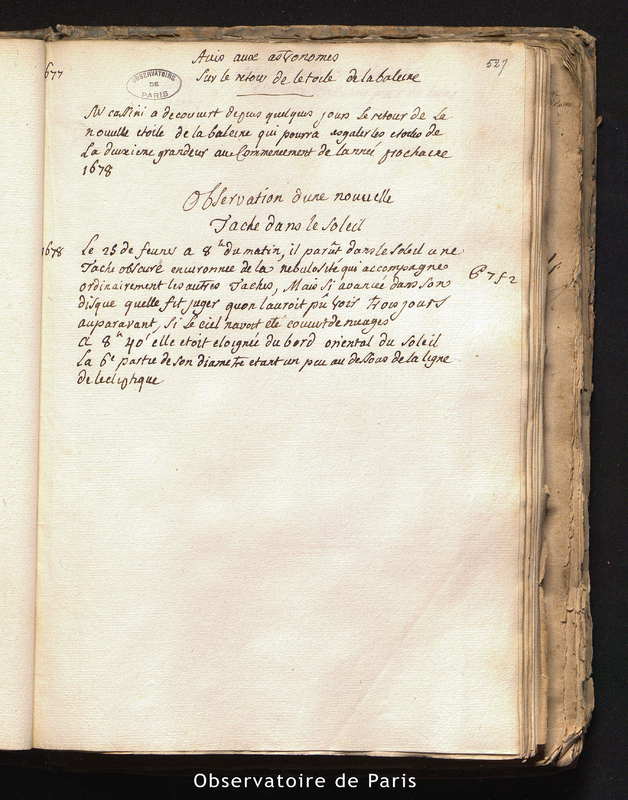 677
527
Avis aux astronomes
Sur le retour de letoile de la baleine
OBSERVATOIRE
DE
PARIS
Mr cassini a decouvert depuis quelques jours le retour de la
nouvelle etoile de la baleine qui pourra esgaler les etoiles de
La deuxieme grandeur au Commencement de lanneé prochaine
1678
Observation dune nouvelle
Tache dans le Soleil
1678
Le 25 de feurier a 8h du matin, il parut dans le soleil une
Tache obscure environneé de la nebulosité qui accompagne
ordinairement les autres Taches, Mais si avanceé dans son
disque quelle fit juger quon lauroit pû voir trois jours
auparavant, si le ciel navoit eté couvert de nuages
a 8h 40' elle etoit eloigneé du bord oriental du Soleil
La 6e partie de son diametre etant un peu au dessous de la ligne
de lecliptique
Observatoire de Paris